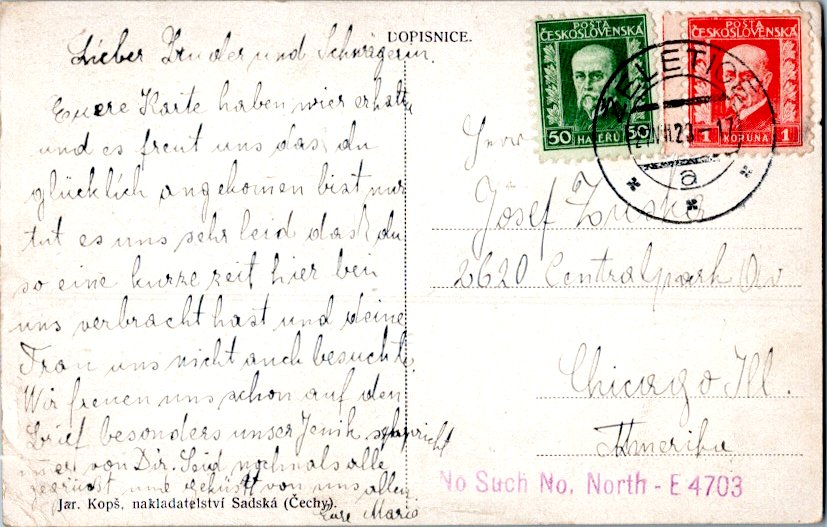 DOPISNICE.
Lieber Bruder und Schwägerin.
Euere Karte haben wier erhalten
und es freut uns das du
glücklich angekomen bist nur
tut es uns sehr leid das du
so eine kurze zeit hier bei
uns verbracht hast und deine
Frau uns nicht auch besucht.
Wir freuen uns schon auf den
Brief besonders unser Jenik spricht
von Dir. Seid nochmals alle
gegrüsst und geküsst von uns allen
Eure Marie
Jar. Kopš, nakladatelství Sadská (Čechy).
POŠTA
ČESKOSLOVENSKÁ
50 HALÉŘŮ 50
POŠTA
ČESKOSLOVENSKÁ
1 KORUNA 1
a
Herrn
Josef
2620 Centralpark Av
Chicago Ill.
Amerika
No Such No. North - E 4703